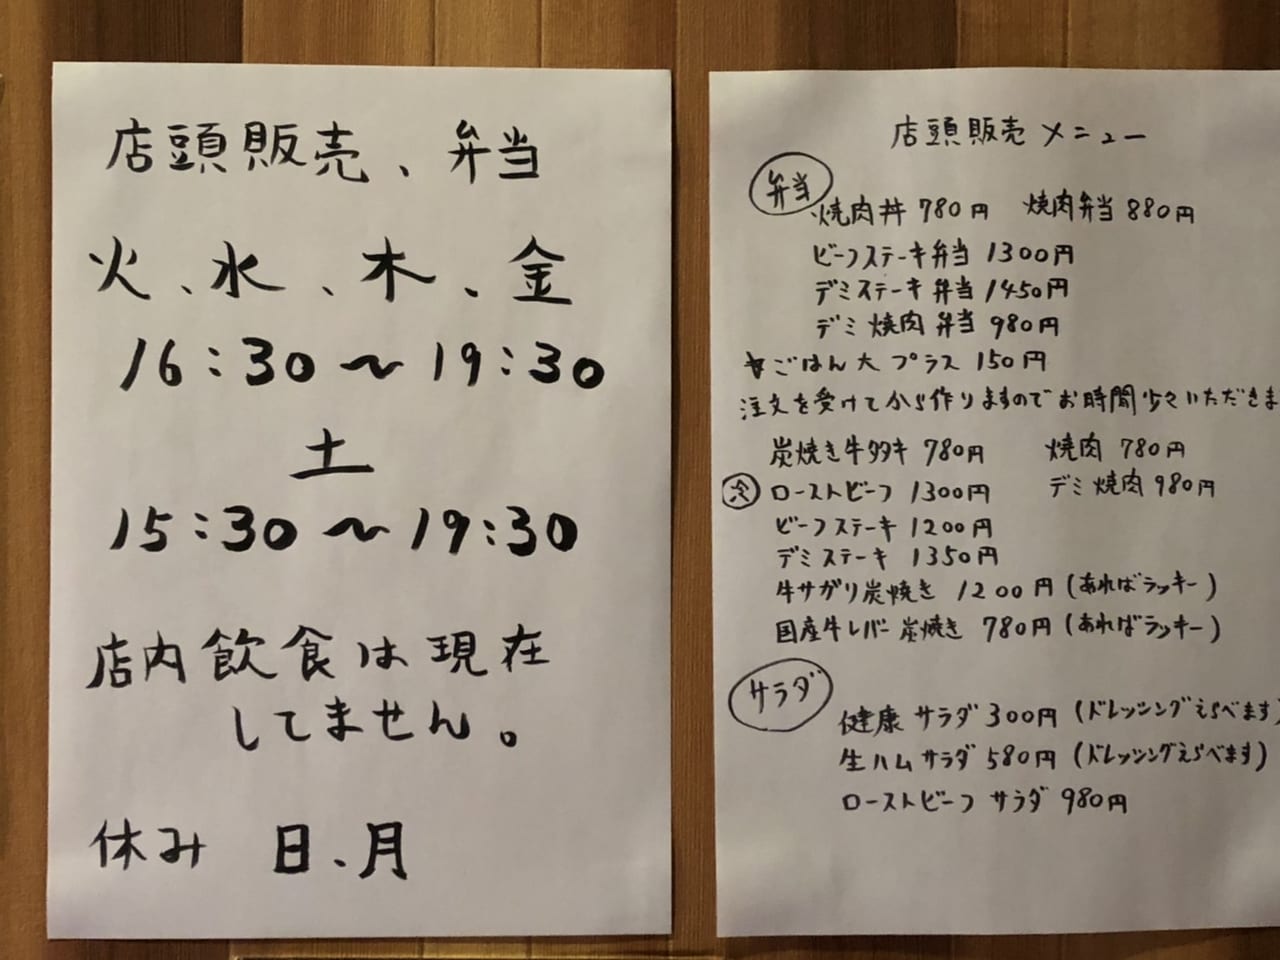 店頭販売、弁当
火、水、木、金
16:30〜19:30
土
15:30〜19:30
店内飲食は現在
してません。
休み 日、月
店頭販売メニュー
弁当
焼肉丼 780円 焼肉弁当 880円
ビーフステーキ弁当 1300円
デミステーキ弁当 1450円
デミ焼肉弁当 980円
ごはん大プラス 150円
注文を受けてから作りますのでお時間少々いただきま
炭焼き牛タタキ 780円 焼肉 780円
ローストビーフ 1300円 デミ焼肉 980円
ビーフステーキ 1200円
デミステーキ 1350円
牛サガリ炭焼き 1200円(あればラッキー)
国産牛レバー炭焼き 780円(あればラッキー)
サラダ
健康サラダ 300円(ドレッシングえらべます)
生ハムサラダ 580円(ドレッシングえらべます)
ローストビーフサラダ 980円